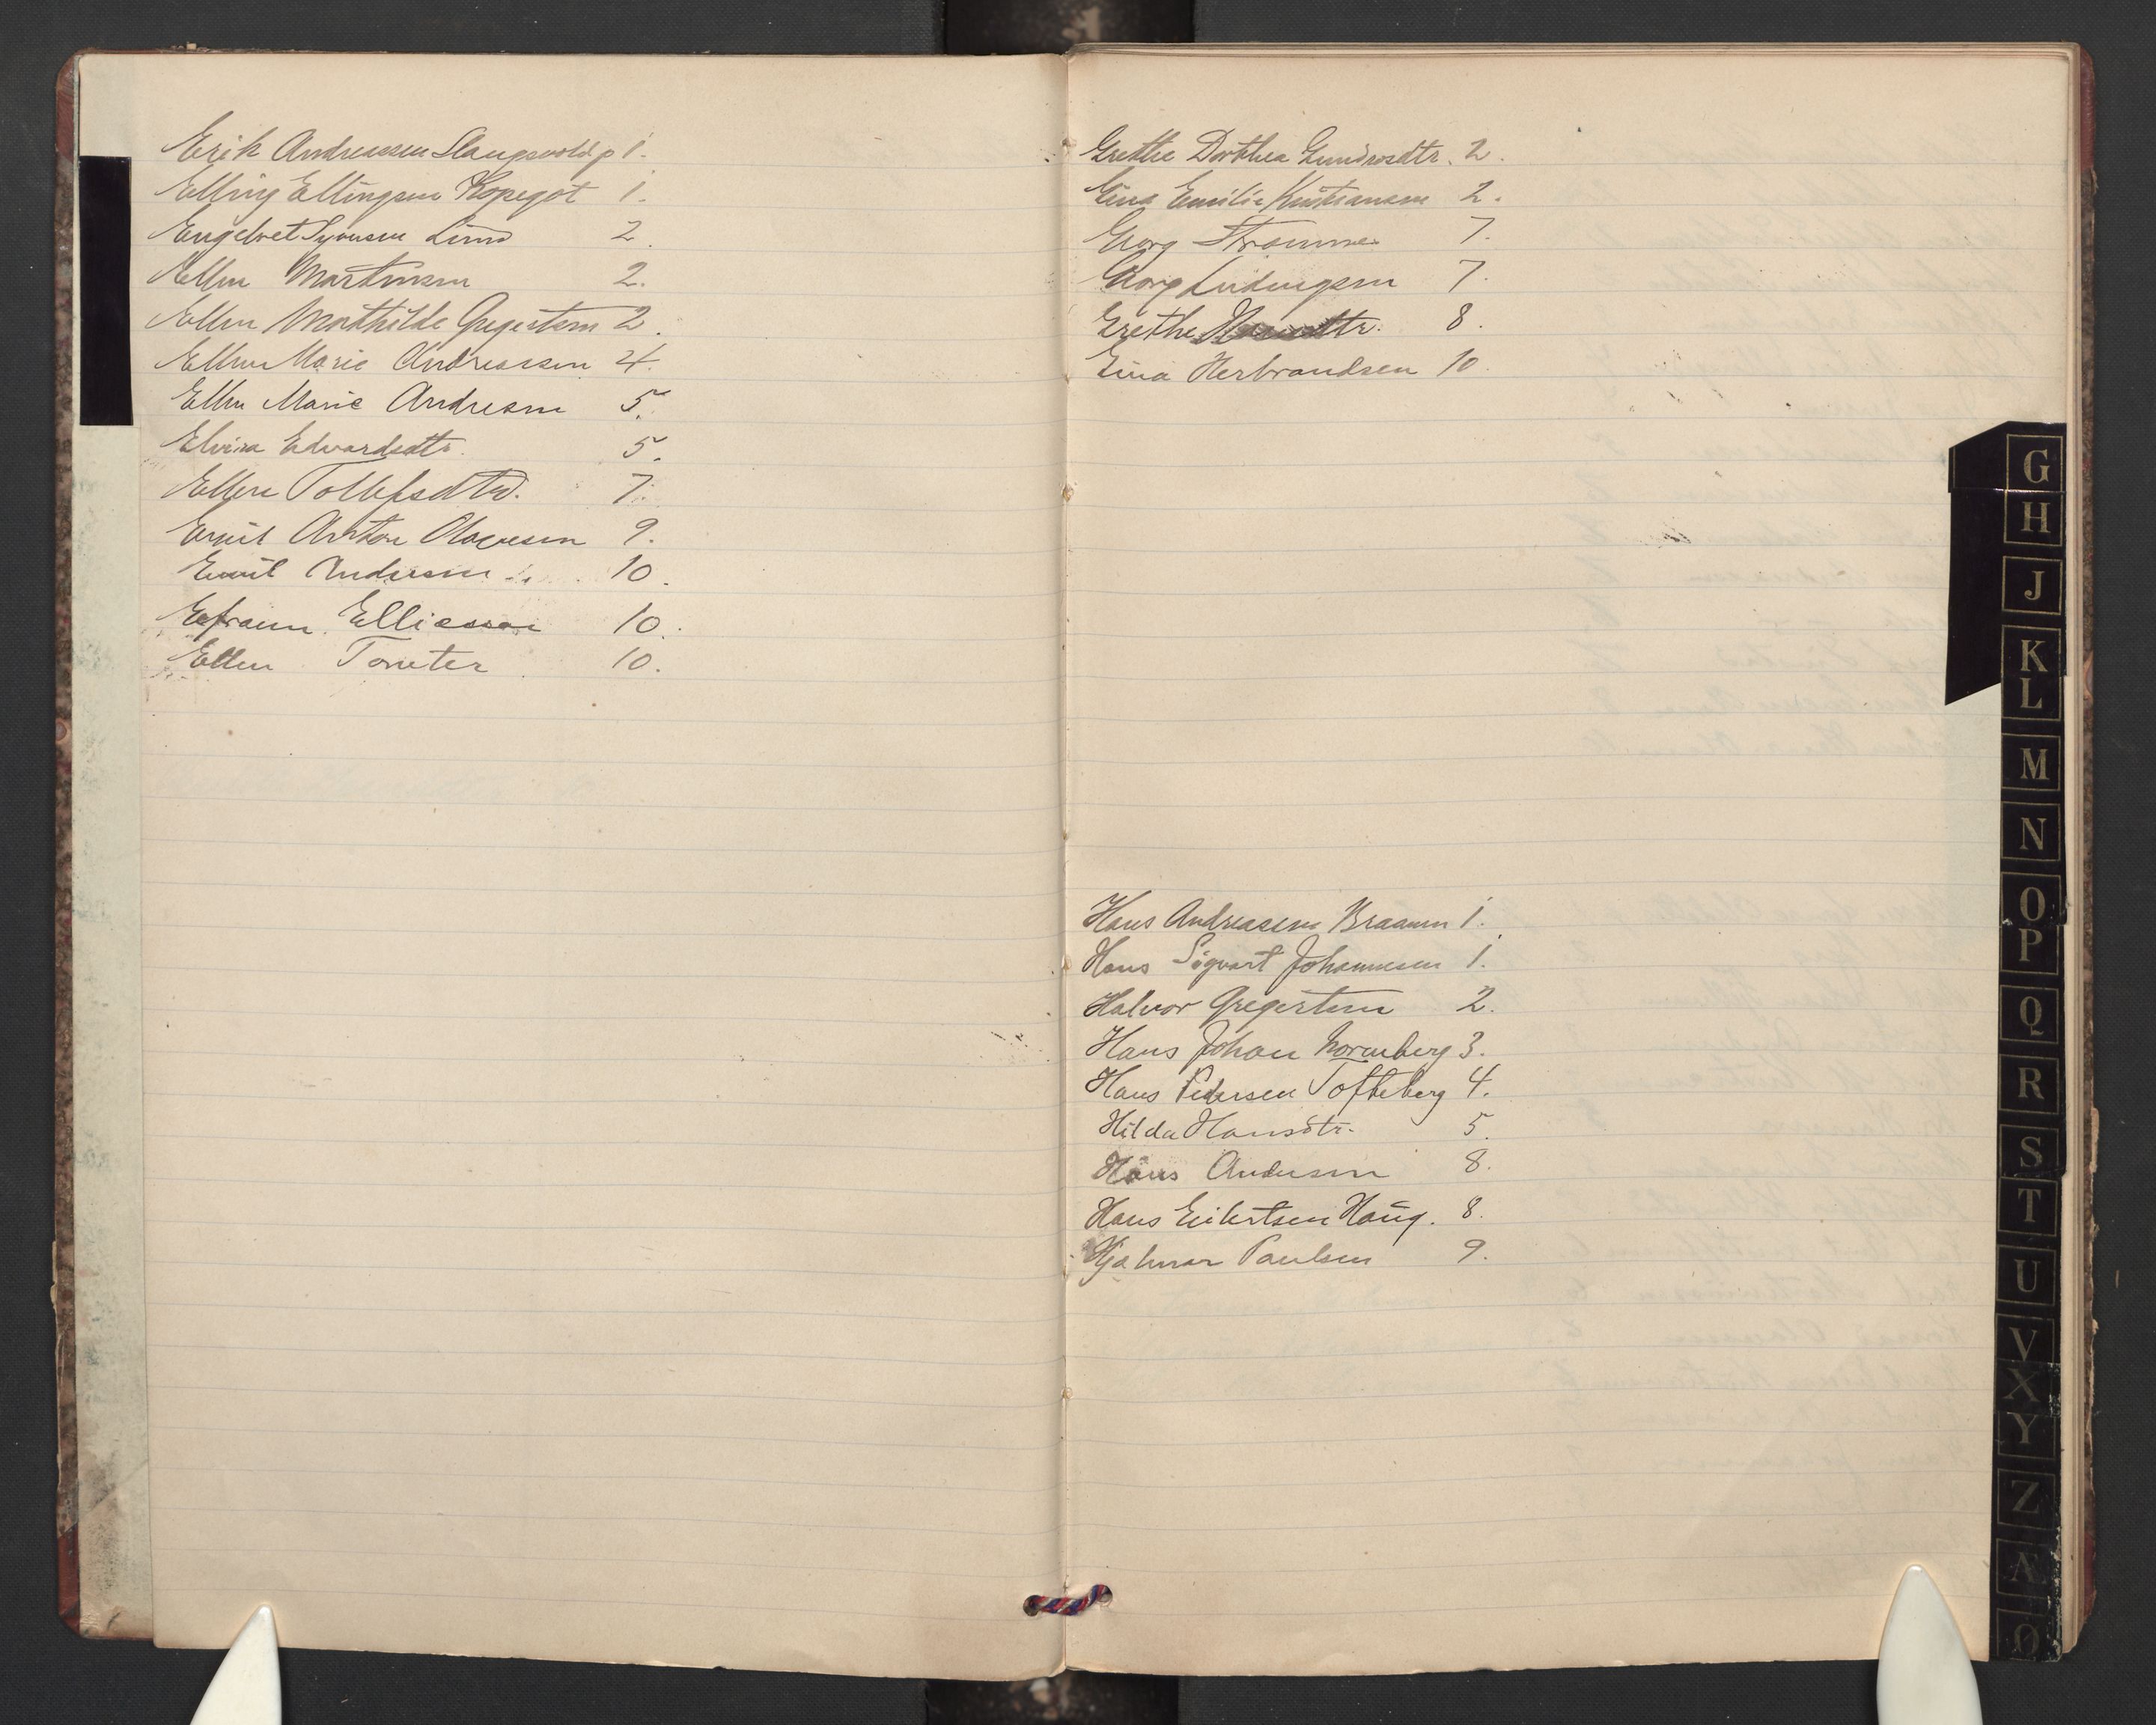 Erik Andreassen Slangsvold p 1.
Elling Ellingsen Kopegot 1.
Engebret Syversen Lund 2.
Ellen Martinsen 2.
Ellen Mathilde Gregertsen 2.
Ellen Marie Andreassen 4.
Ellen Marie Andresen 5.
Elvira Edvardsdtr. 5.
Ellen Tollefsdtr. 7.
Emil Anton Olavesen 9.
Emil Andersen 10.
Efraim Elliesson 10.
Ellen Tomter 10.
Grethe Dorthea Gundrosdtr. 2.
Gina Emilie Kristiansen 2.
Georg Strømme 7.
Georg Ludvigsen 7.
Grethe 8.
Gina Herbrandsen 10.
Hans Andreasen Braanen 1.
Hans Sigvart Johannesen 1.
Halvor Gregertsen 2.
Hans Johan Nornberg 3.
Hans Pedersen Tofteberg 4.
Hilda Hansdtr. 5.
Hans Andersen 8.
Hans Eilertsen Haug. 8.
Hjalmar Paulsen 9.
G
H
J
K
L
M
N
O
P
Q
R
S
T
U
V
X
Y
Z
Æ
Ø